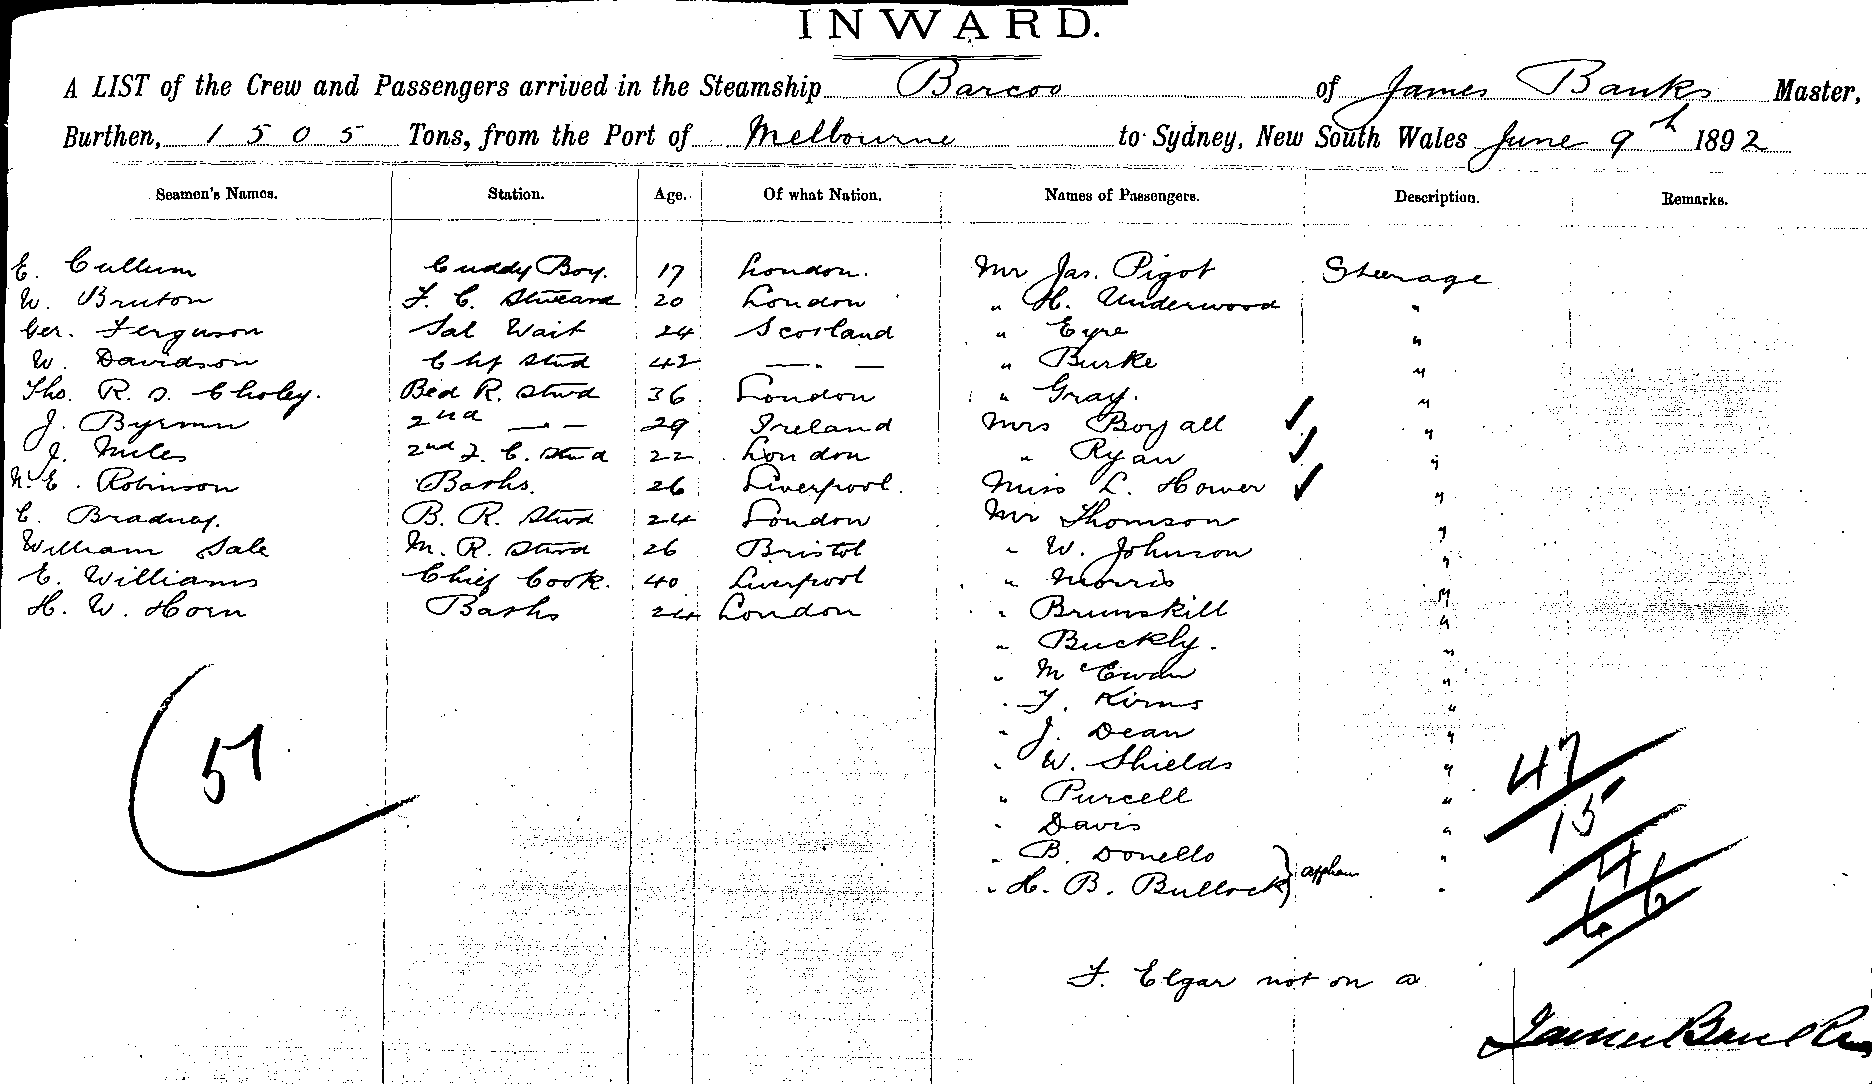 INWARD.
A LIST of the Crew and Passengers arrived in the Steamship Barcoo of James Banks Master,
Burthen, 1505 Tons, from the Port of Melbourne to Sydney, New South Wales June 9th 1892
Seamen's Names. Station. Age. Of what Nation. Names of Passengers. Description. Remarks.
E. Cullum Cuddy Boy. 17 London. Mr Jas. Pigot Steerage
W. Bruton F. C. Steward 20 London " H. Underwood "
Ger. Ferguson Sal Wait 24 Scotland " Eyre "
W. Davidson Chf Stwd 42 — . — " Burke "
Thos. R. S. Choley. Bed R. Stwd 36 London " Gray. "
J. Byrnn 2nd — . — 29 Ireland Mrs Boyall ✓ "
J. Miles 2nd F. C. Stwd 22 London " Ryan ✓ "
E. Robinson Barks. 26 Liverpool. Miss L. Hower ✓ "
C. Bradney. B. R. Stwd 24 London Mr Thomson "
William Sale M. R. Stwd 26 Bristol " W. Johnson "
E. Williams Chief Cook. 40 Liverpool " Morris "
H. W. Horn Barks 24 London " Brunskill "
" Buckly. "
" McEwan "
" J. Kirns "
" J. Dean "
" W. Shields "
" Purcell "
" Davis "
" B. Donello "
" H. B. Bullock "
57
47
15
4
66
F. Elgar not on a
James Banks